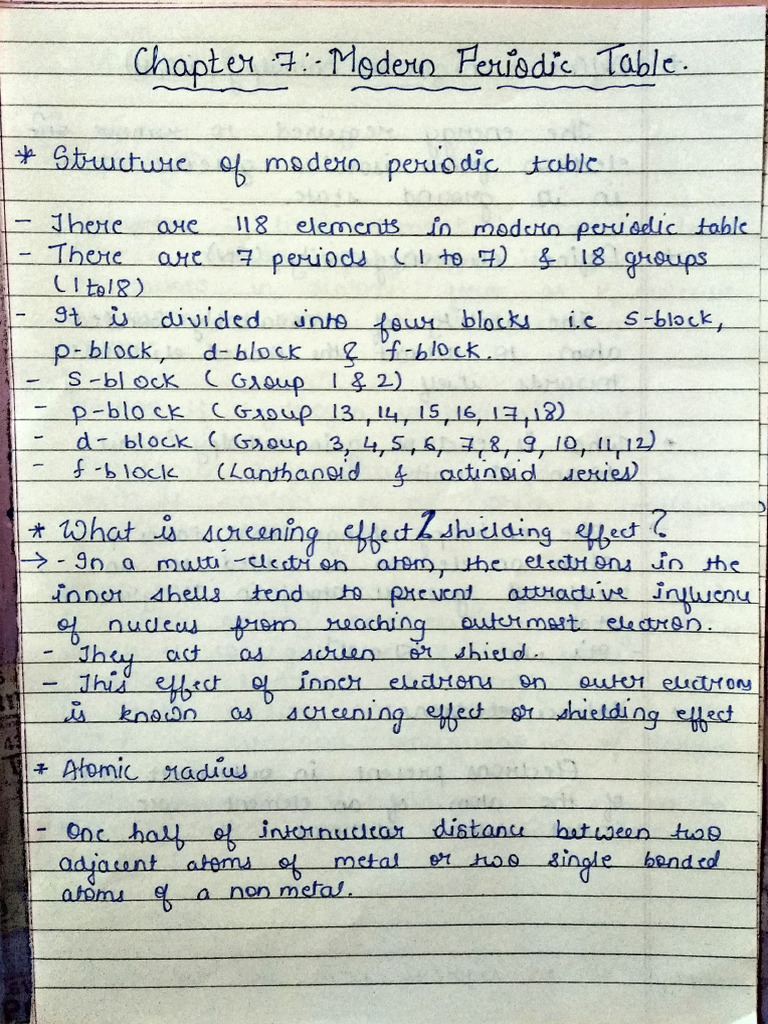 Chapter 7:- Modern Periodic Table.
* Structure of modern periodic table
- There are 118 elements in modern periodic table
- There are 7 periods (1 to 7) & 18 groups
(1 to 18)
- It is divided into four blocks i.e s-block,
p-block, d-block & f-block.
- s-block (Group 1 & 2)
- p-block (Group 13, 14, 15, 16, 17, 18)
- d-block (Group 3, 4, 5, 6, 7, 8, 9, 10, 11, 12)
- f-block (Lanthanoid & actinoid series)
* What is screening effect / shielding effect?
→ - In a multi-electron atom, the electrons in the
inner shells tend to prevent attractive influence
of nucleus from reaching outermost electron.
- They act as screen or shield.
- This effect of inner electrons on outer electrons
is known as screening effect or shielding effect
* Atomic radius
- One half of internuclear distance between two
adjacent atoms of metal or two single bonded
atoms of a non metal.